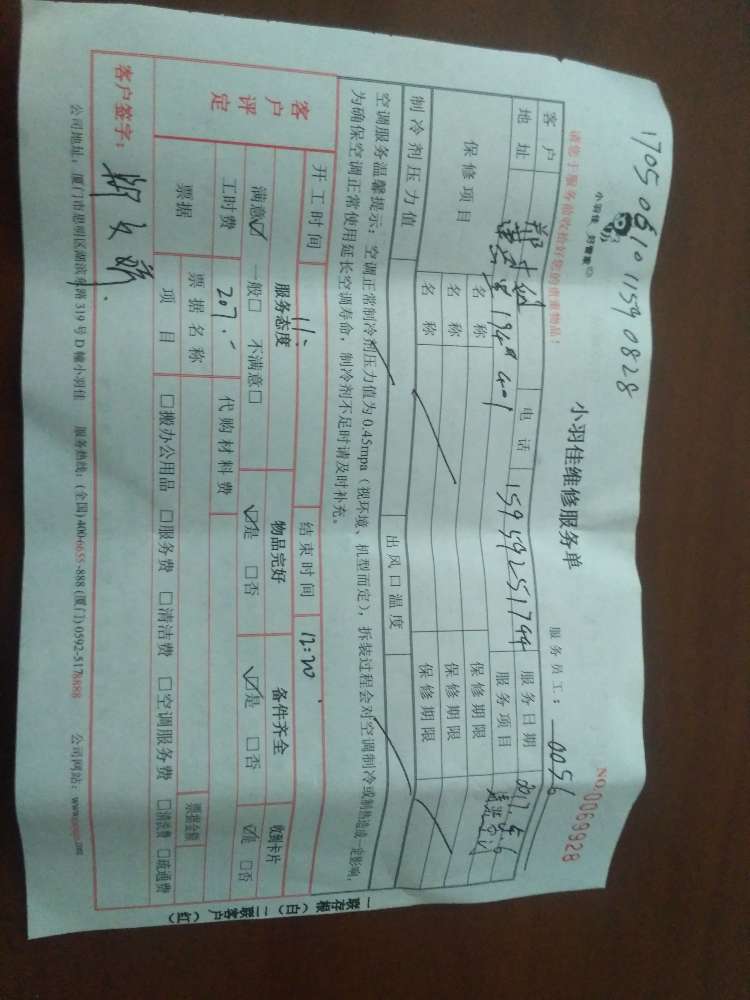 170506101159 0828
小羽佳 好管家
请您于服务前收拾好您的贵重物品！
小羽佳维修服务单
NO.0069928
服务员工： 0056
客户 电话 15959251744 服务日期 6.6
地址 194# 401 服务项目
保修项目 名称 保修期限
名称 保修期限
名称 保修期限
制冷剂压力值 出风口温度
空调服务温馨提示：空调正常制冷剂压力值为0.45mpa（视环境、机型而定），拆装过程会对空调制冷或制热造成一定影响，
为确保空调正常使用延长空调寿命，制冷剂不足时请及时补充。
开工时间 11: 结束时间 12:20
客户评定 服务态度 物品完好 备件齐全 收到卡片
满意☑ 一般□ 不满意□ ☑是 □否 ☑是 □否 ☑是 □否
工时费 207.- 代购材料费
票据 票据名称 票据金额
项目 □搬办公用品 □服务费 □清洁费 □空调服务费 □清洗费 □疏通费
客户签字：
公司地址：厦门市思明区湖滨东路319号D幢小羽佳 服务热线：(全国)400-6655-888 (厦门)0592-5178888 公司网站：
一联存根（白） 二联客户（红）